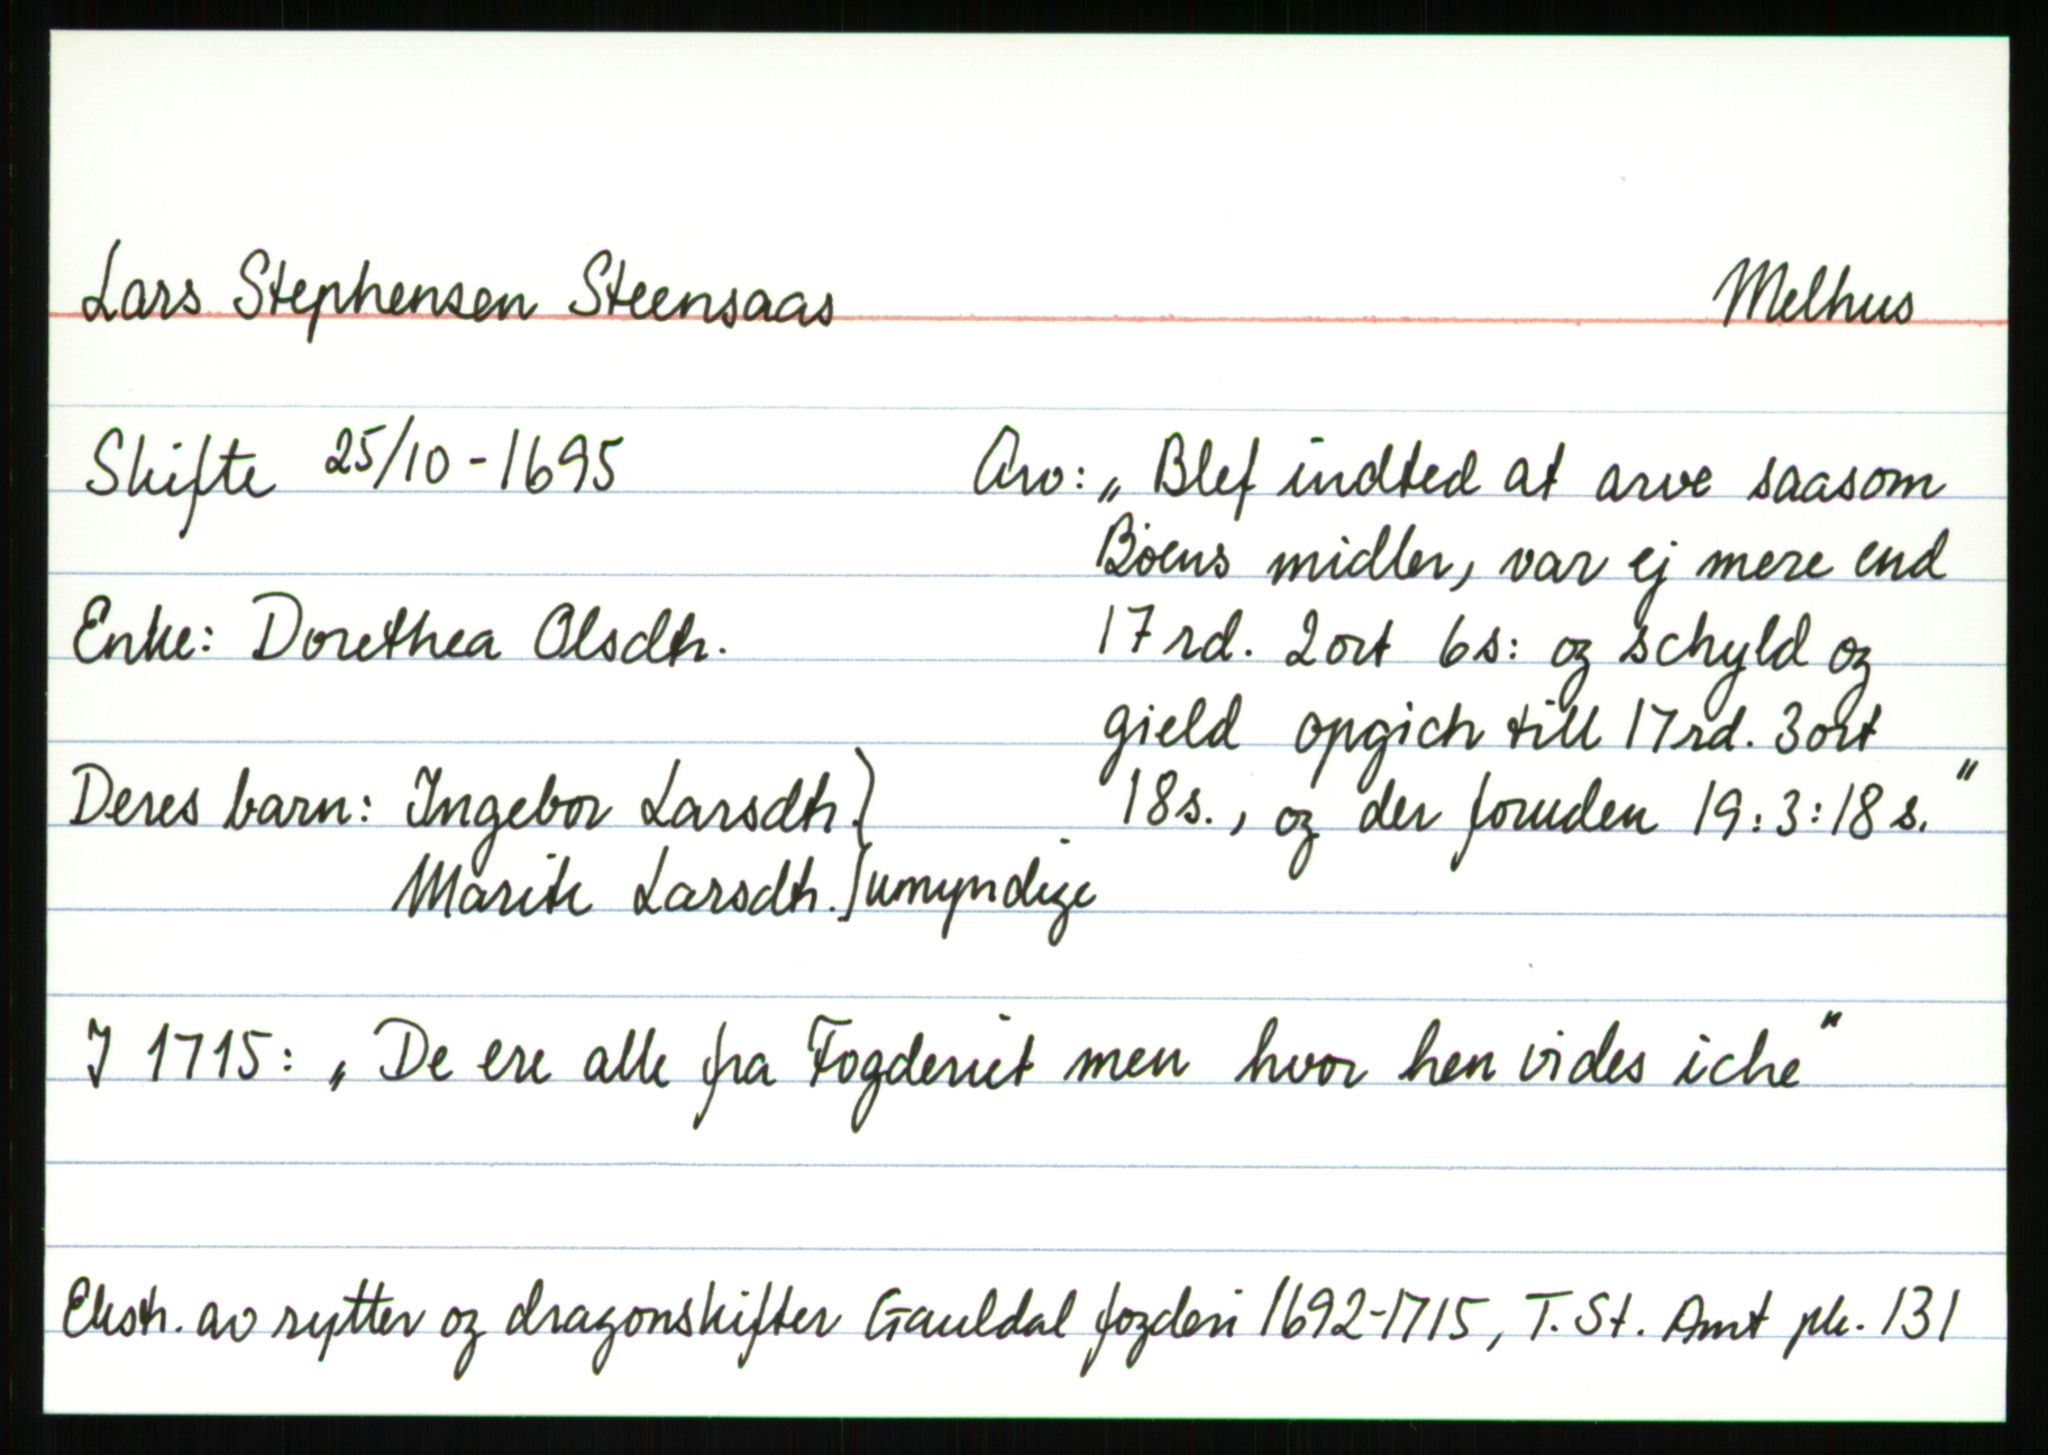 Lars Stephensen Steensaas Melhus
Skifte 25/10-1695
Enke: Dorethea Olsdtr.
Deres barn: Ingebor Larsdtr. }
Marite Larsdtr. } umyndige
Arv: „Blef indted at arve saasom
Boens midler, var ej mere end
17 rd. 2 ort 6 s: og schyld og
gield opgich till 17 rd. 3 ort
18 s., og der foruden 19:3:18 s."
I 1715: „De ere alle fra Fogderiet men hvor hen vides iche"
Ekstr. av rytter og dragonskifter Gauldal fogderi 1692-1715, T. St. Amt pk. 131